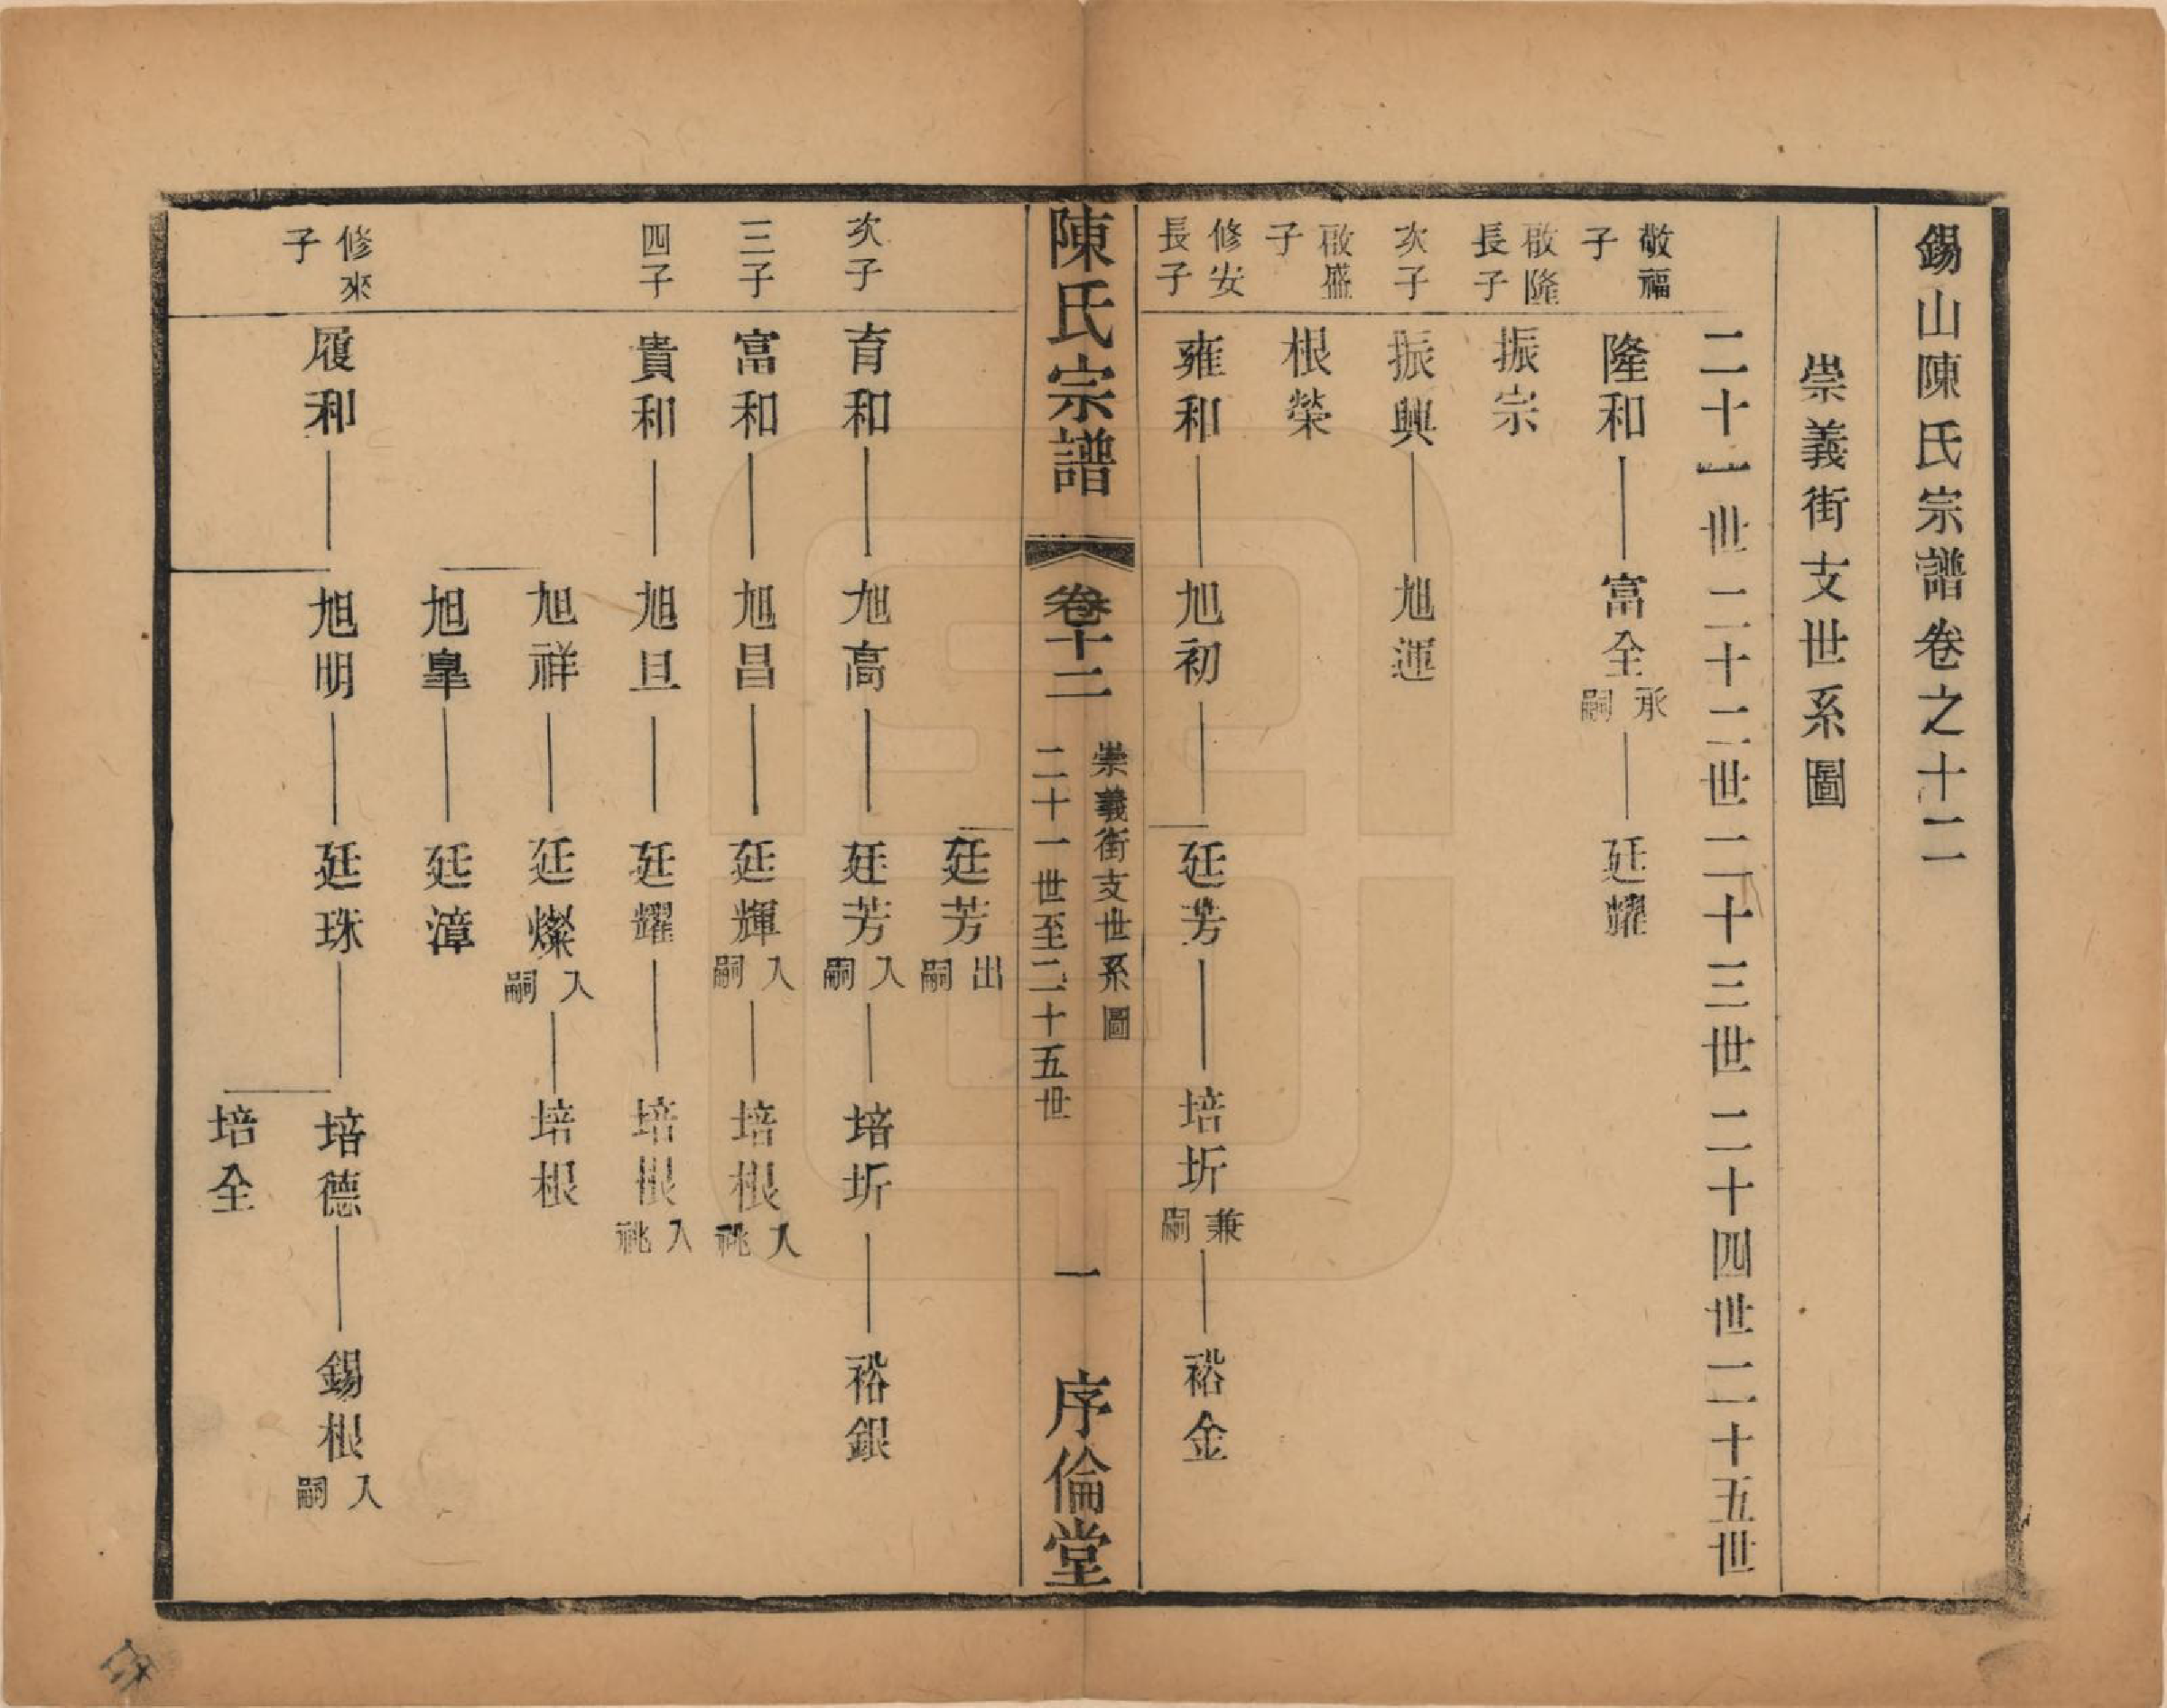 錫山陳氏宗譜卷之十二
崇義街支世系圖
二十一世 二十二世 二十三世 二十四世 二十五世
敬福子 隆和 富全 承嗣 延耀
啟隆長子 振宗
次子 振興 旭運
啟盛子 根榮
修安長子 雍和 旭初 廷芳 培圻 兼嗣 裕金
陳氏宗譜 卷十二 崇義街支世系圖 二十一世至二十五世 一 序倫堂
廷芳 出嗣
次子 育和 旭高 廷芳 入嗣 培圻 裕銀
三子 富和 旭昌 延輝 入嗣 培根 入祧
四子 貴和 旭旦 延耀 培根 入祧
旭祥 延燦 入嗣 培根
旭臯 延漳
修來子 履和 旭明 延珠 培德 錫根 入嗣
培全